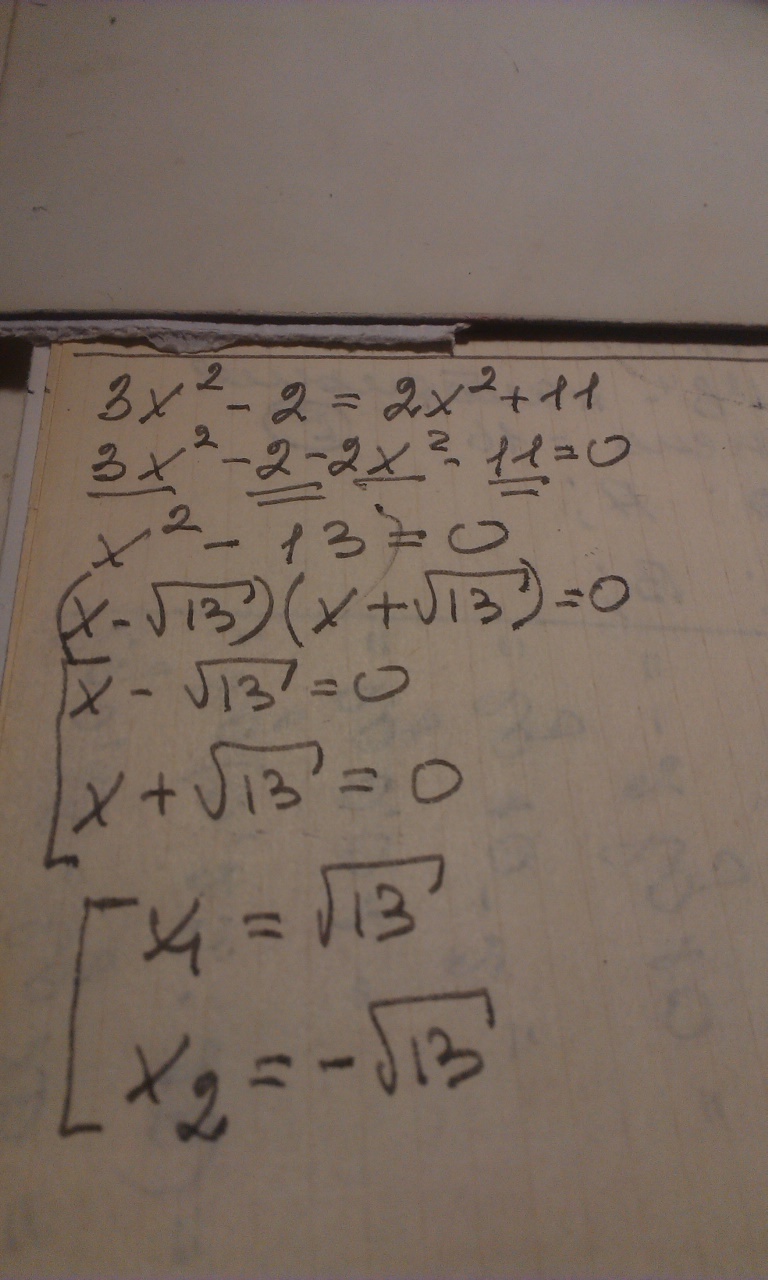 3x² - 2 = 2x² + 11
3x² - 2 - 2x² - 11 = 0
x² - 13 = 0
(x - √13)(x + √13) = 0
[x - √13 = 0
x + √13 = 0
[x₁ = √13
x₂ = -√13